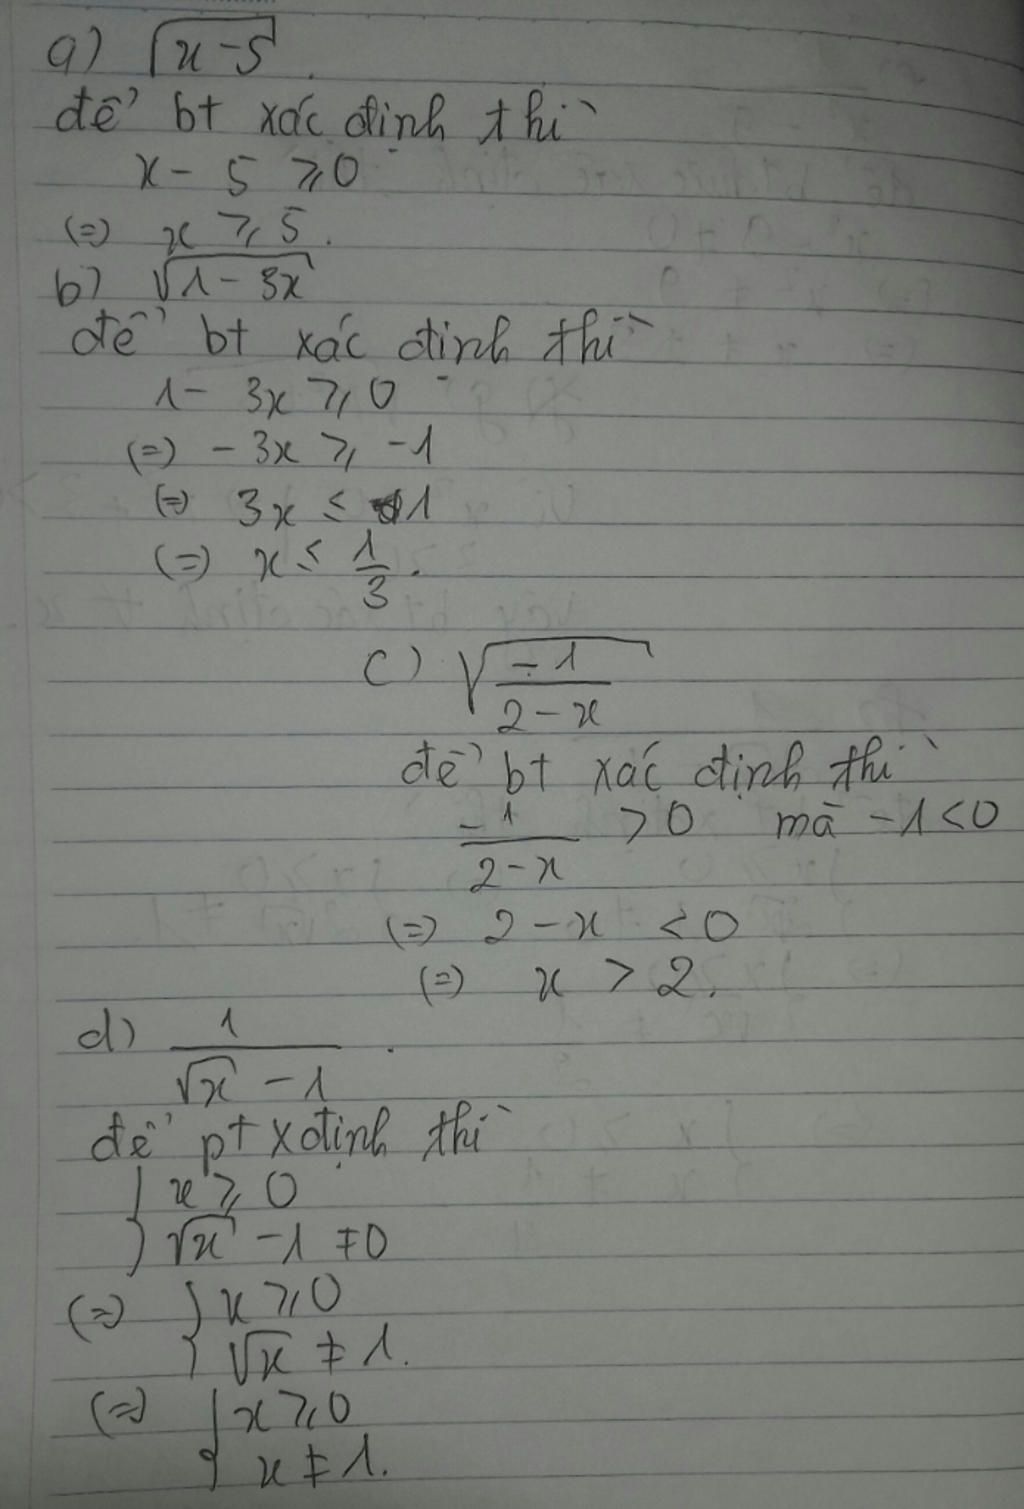 a) √(x-5).
để bt xác định thì
x - 5 ⩾ 0
(=) x ⩾ 5.
b) √(1-3x)
để bt xác định thì
1 - 3x ⩾ 0
(=) - 3x ⩾ -1
(=) 3x ≤ 1
(=) x ≤ 1/3.
c) √(-1/(2-x))
để bt xác định thì
-1/(2-x) > 0 mà -1 < 0
(=) 2 - x < 0
(=) x > 2.
d) 1/(√x - 1).
để pt xđịnh thì
{ x ⩾ 0
√x - 1 ≠ 0
(=) { x ⩾ 0
√x ≠ 1.
(=) { x ⩾ 0
x ≠ 1.